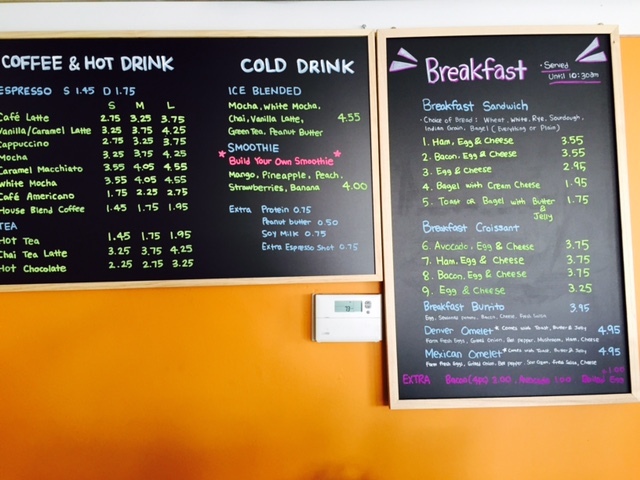 COFFEE & HOT DRINK
ESPRESSO S 1.45 D 1.75
S M L
Café Latte 2.75 3.25 3.75
Vanilla/Caramel Latte 3.25 3.75 4.25
Cappuccino 2.75 3.25 3.75
Mocha 3.25 3.75 4.25
Caramel Macchiato 3.55 4.05 4.55
White Mocha 3.55 4.05 4.55
Café Americano 1.75 2.25 2.75
House Blend Coffee 1.45 1.75 1.95
TEA
Hot Tea 1.45 1.75 1.95
Chai Tea Latte 3.25 3.75 4.25
Hot Chocolate 2.25 2.75 3.25
COLD DRINK
ICE BLENDED
Mocha, White Mocha,
Chai, Vanilla Latte, 4.55
Green Tea, Peanut Butter
SMOOTHIE
* Build Your Own Smoothie *
Mango, Pineapple, Peach,
Strawberries, Banana 4.00
Extra Protein 0.75
Peanut butter 0.50
Soy Milk 0.75
Extra Espresso Shot 0.75
Breakfast
• Served
Until 10:30am
Breakfast Sandwich
• Choice of Bread: Wheat, White, Rye, Sourdough,
Indian Grain, Bagel (Everything or Plain)
1. Ham, Egg & Cheese 3.55
2. Bacon, Egg & Cheese 3.55
3. Egg & Cheese 2.95
4. Bagel with Cream Cheese 1.95
5. Toast or Bagel with Butter 1.75
& Jelly
Breakfast Croissant
6. Avocado, Egg & Cheese 3.75
7. Ham, Egg & Cheese 3.75
8. Bacon, Egg & Cheese 3.75
9. Egg & Cheese 3.25
Breakfast Burrito 3.95
Egg, Bacon, Cheese,
Denver Omelet * Comes with Toast, Butter & Jelly 4.95
Farm Fresh Eggs, Grilled Onion, Bell pepper, Mushroom, Ham, Cheese
Mexican Omelet * Comes with Toast, Butter & Jelly 4.95
Farm Fresh Eggs, Grilled Onion, Bell pepper, Sour Cream, Salsa, Cheese
EXTRA Bacon 2.00, Avocado 1.00 Egg 1.00